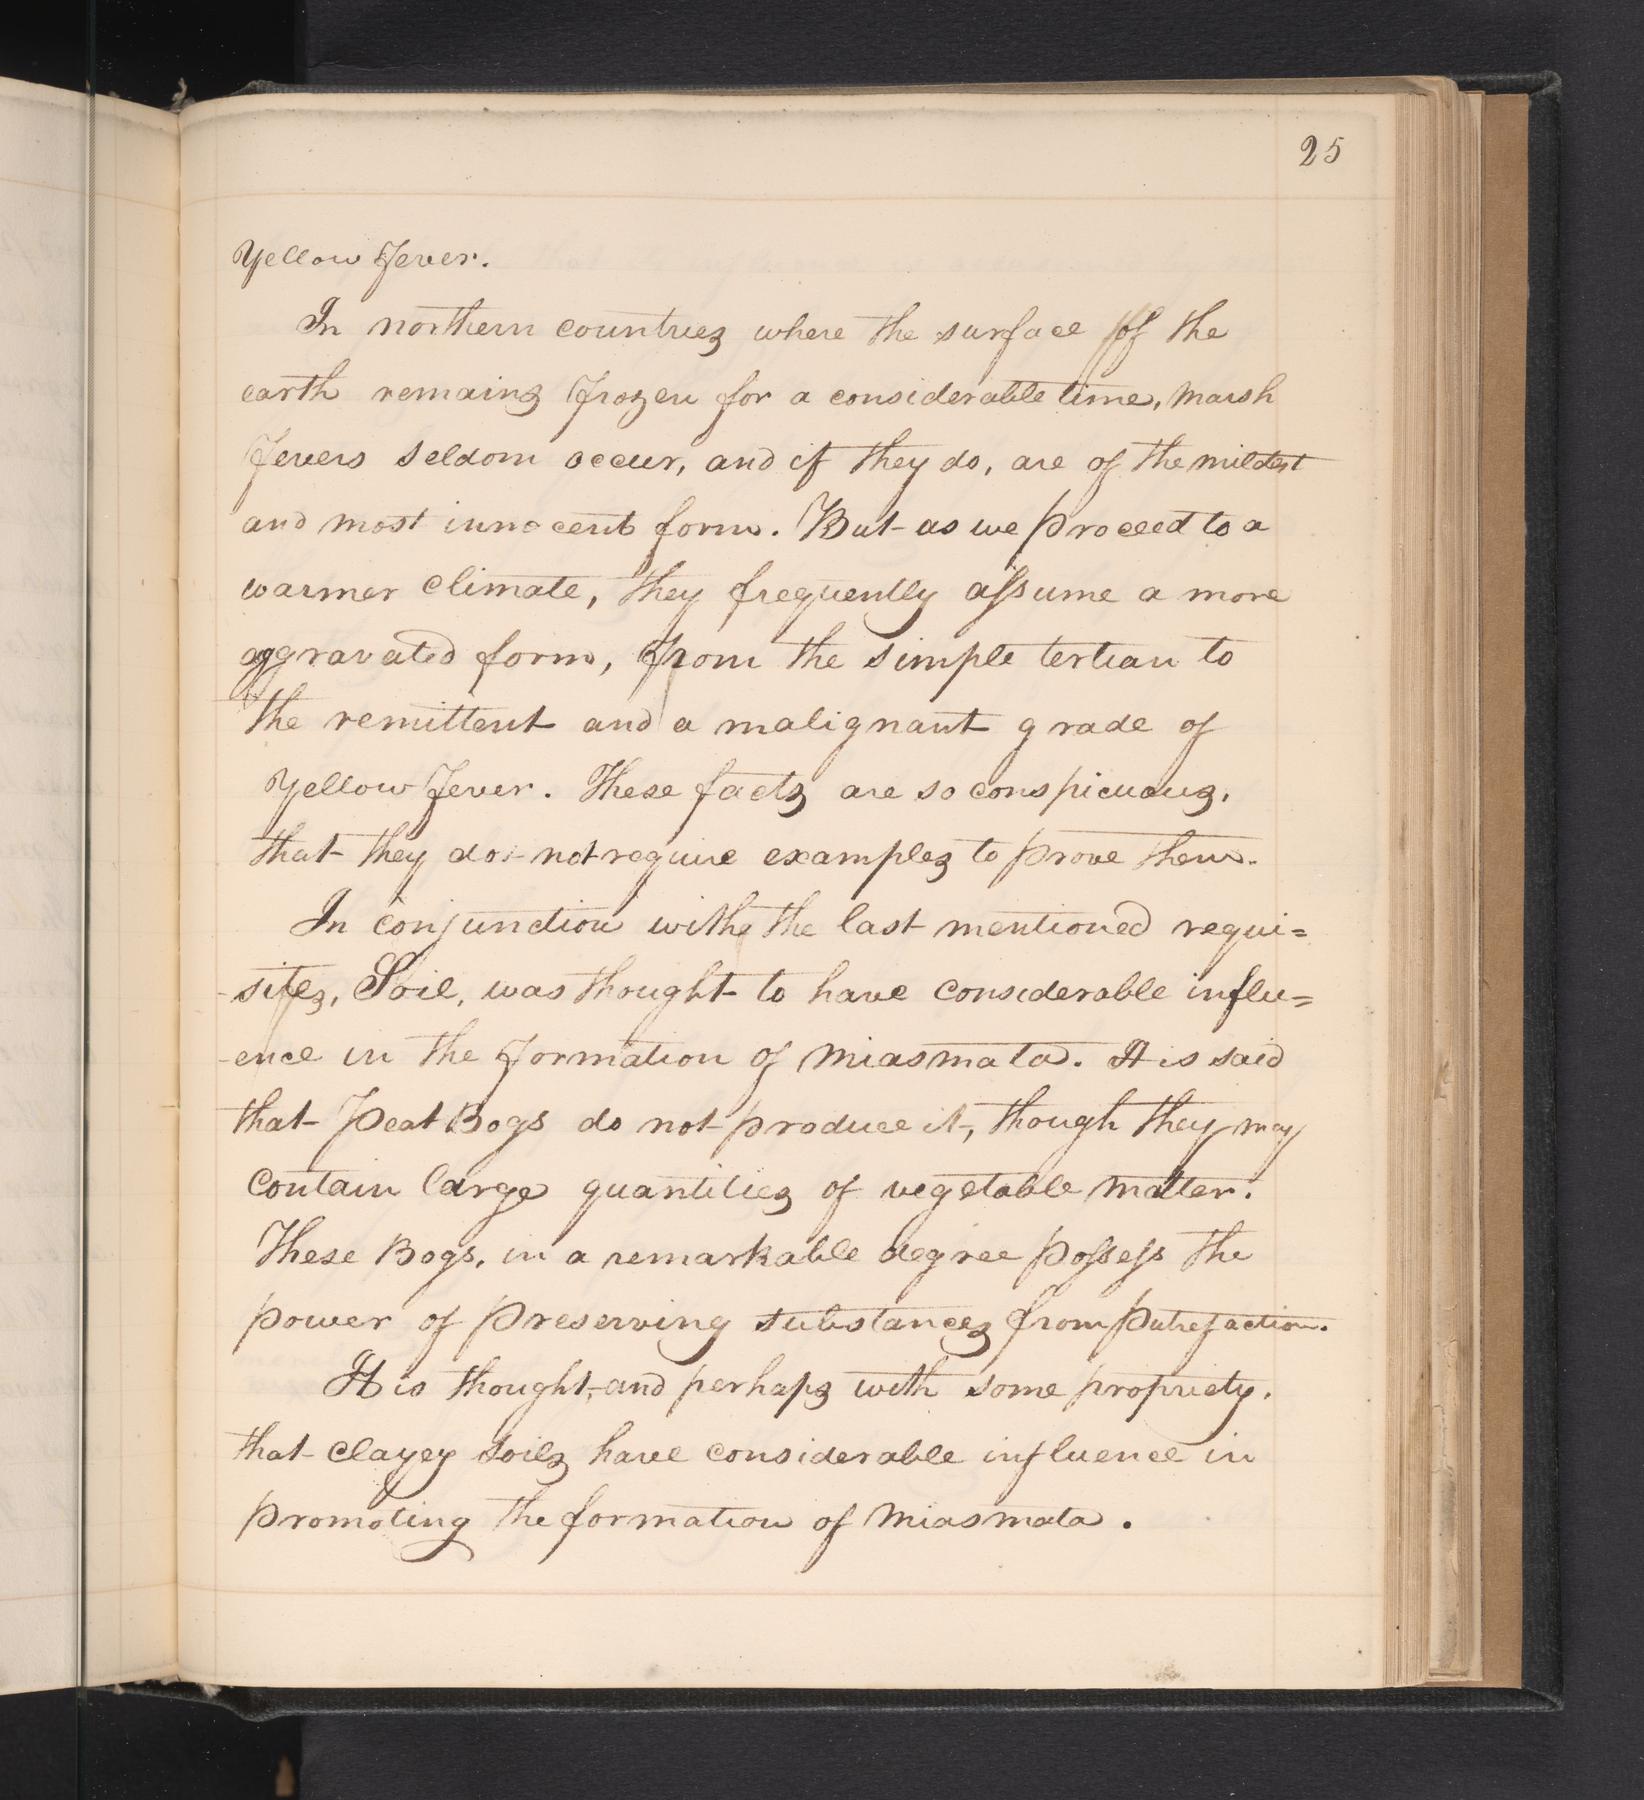 25
Yellow Fever.
In northern countries where the surface of the
earth remains frozen for a considerable time, marsh
Fevers seldom occur, and if they do, are of the mildest
and most innocent form. But as we proceed to a
warmer climate, they frequently assume a more
aggravated form, from the simple tertian to
the remittent and a malignant grade of
Yellow Fever. These facts are so conspicuous,
that they do not require examples to prove them.
In conjunction with the last mentioned requi=
-sites, Soil, was thought to have considerable influ=
-ence in the formation of Miasmata. It is said
that Peat Bogs do not produce it, though they may
contain large quantities of vegetable matter.
These Bogs, in a remarkable degree possess the
power of preserving substances from putrefaction.
It is thought, and perhaps with some propriety,
that clayey soils have considerable influence in
promoting the formation of Miasmata.